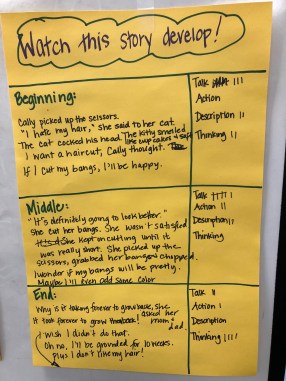 Watch this story develop!
Beginning:
Cally picked up the scissors.
"I hate my hair," she said to her cat.
The cat cocked his head. The kitty smelled
like cupcakes &
I want a haircut, Cally thought.
If I cut my bangs, I'll be happy.
Talk III
Action
Description II
Thinking II
Middle:
"It's definitely going to look better."
She cut her bangs. She wasn't satisfied
She kept on cutting until it
was really short. She picked up the
scissors, grabbed her bangs and chopped.
I wonder if my bangs will be pretty.
Maybe I'll even add some color
Talk I
Action I
Description II
Thinking
End:
Why is it taking forever to grow back, she
asked her
mom & dad
It took forever to grow
I wish I didn't do that.
Oh no, I'll be grounded for weeks.
Plus I don't like my hair!
Talk II
Action I
Description
Thinking IIII